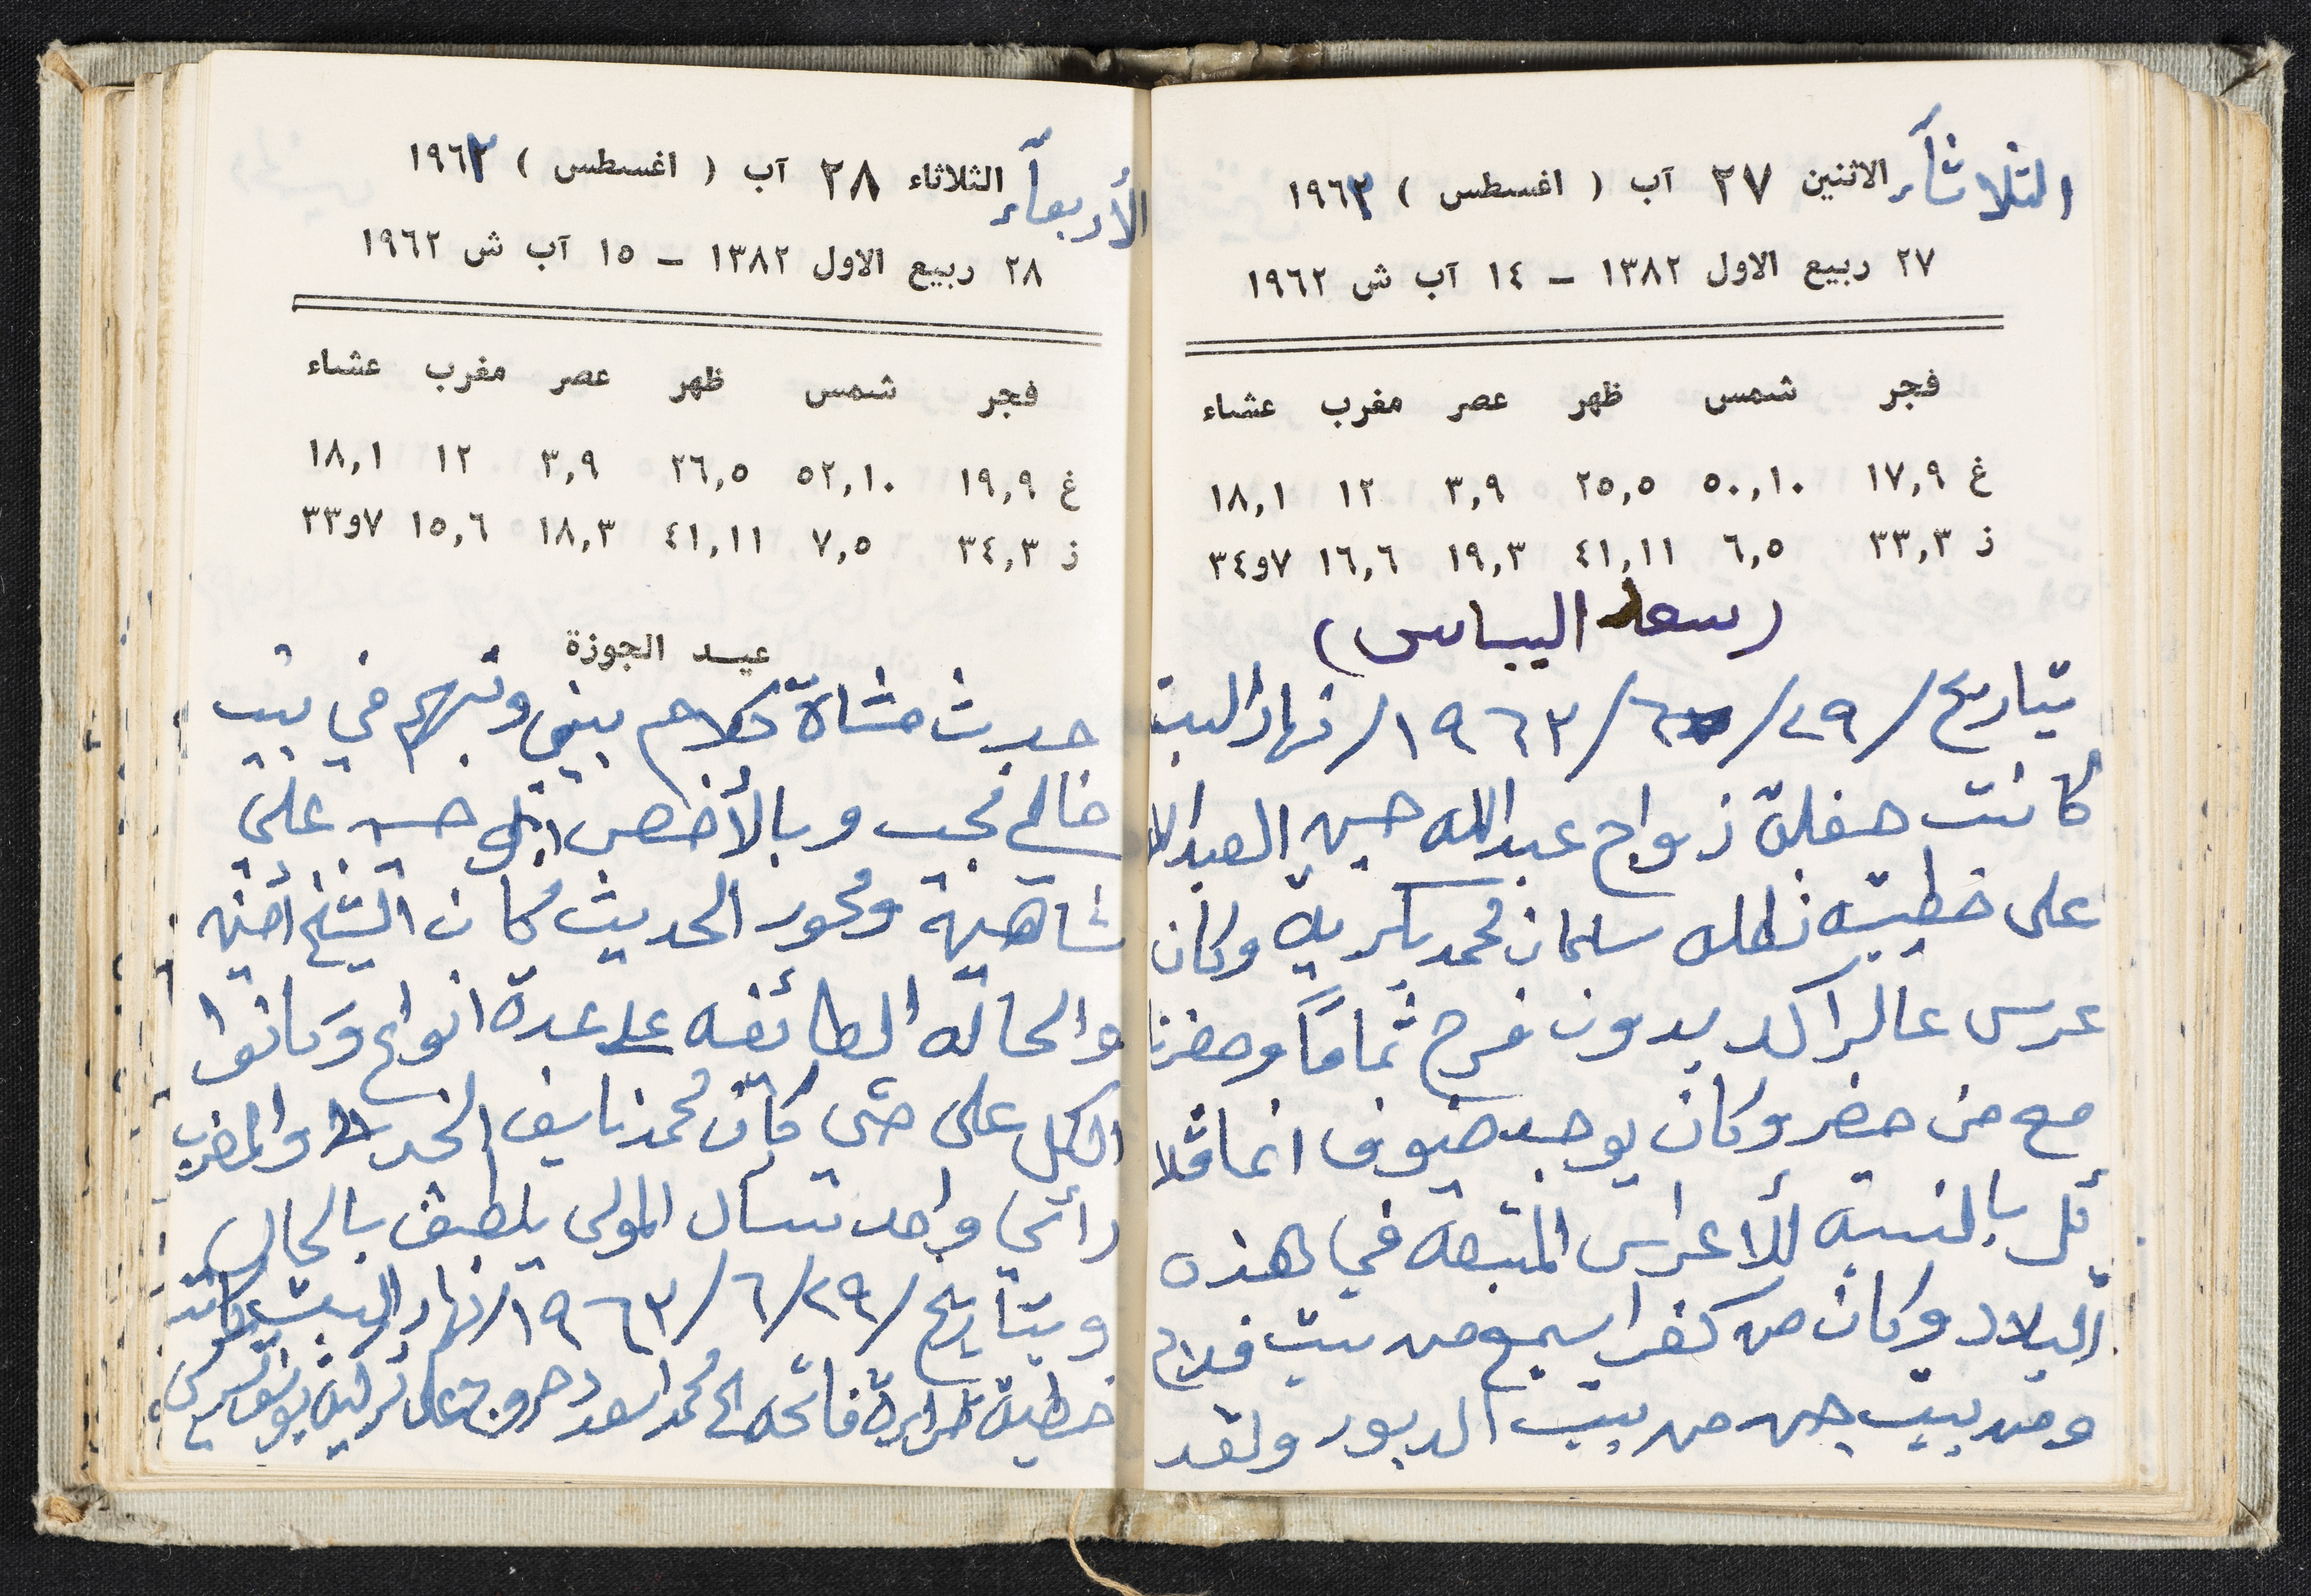 الثلاثآء الاثنين ٢٧ آب ( اغسطس ) ١٩٦٣
٢٧ ربيع الاول ١٣٨٢ – ١٤ آب ش ١٩٦٢
فجر شمس ظهر عصر مغرب عشاء
غ ١٧,٩ ٥٠,١٠ ٢٥,٥ ٣,٩ ١٢ ١٨,١
ز ٣٣,٣ ٦,٥ ٤١,١١ ١٩,٣ ١٦,٦ ٧و٣٤
(سعد اليباس)
بتاريخ /٢٩/ ٦/ ١٩٦٣/ نهار السبت
كانت حفلة زواج عبدالله حسين العبدالله
على خطيبته سلمان محمد بكرية وكان
عرس عالراكد بدون فرح تماماً وحضرنا
مع من حضر وكان يوجد ضيوف انما قلا
ئل بالنسبة للأعراس المتبعه في هذه
البلاد وكان من كفر اسميع من بيت فلاح
ومن بيت جن من بيت الدبور ولقد
الأربعآء الثلاثاء ٢٨ آب ( اغسطس ) ١٩٦٣
٢٨ ربيع الاول ١٣٨٢ – ١٥ آب ش ١٩٦٢
فجر شمس ظهر عصر مغرب عشاء
غ ١٩,٩ ٥٢,١٠ ٢٦,٥ ٣,٩ ١٢ ١٨,١
ز ٣٤,٣ ٧,٥ ٤١,١١ ١٨,٣ ١٥,٦ ٧و٣٣
عيـد الجوزة
حدث مشاة كلام بيني وبينهم في بيت
خالي نجيب وبالأخص ابو حسن علي
شاهين ومحور الحديث كان الشيخ أمين
والحاله الطائفه على عدة انواع وكانوا
الكل على حتى كان محمد نايف والمغرب
رأي واحد نسال المولى يلطف بالحال
وبتاريخ /٢٩/ ٦/ ١٩٦٣/ نهار السبت كانت
خطبة فاتحه الى محمد اسعد دحروج على تركية